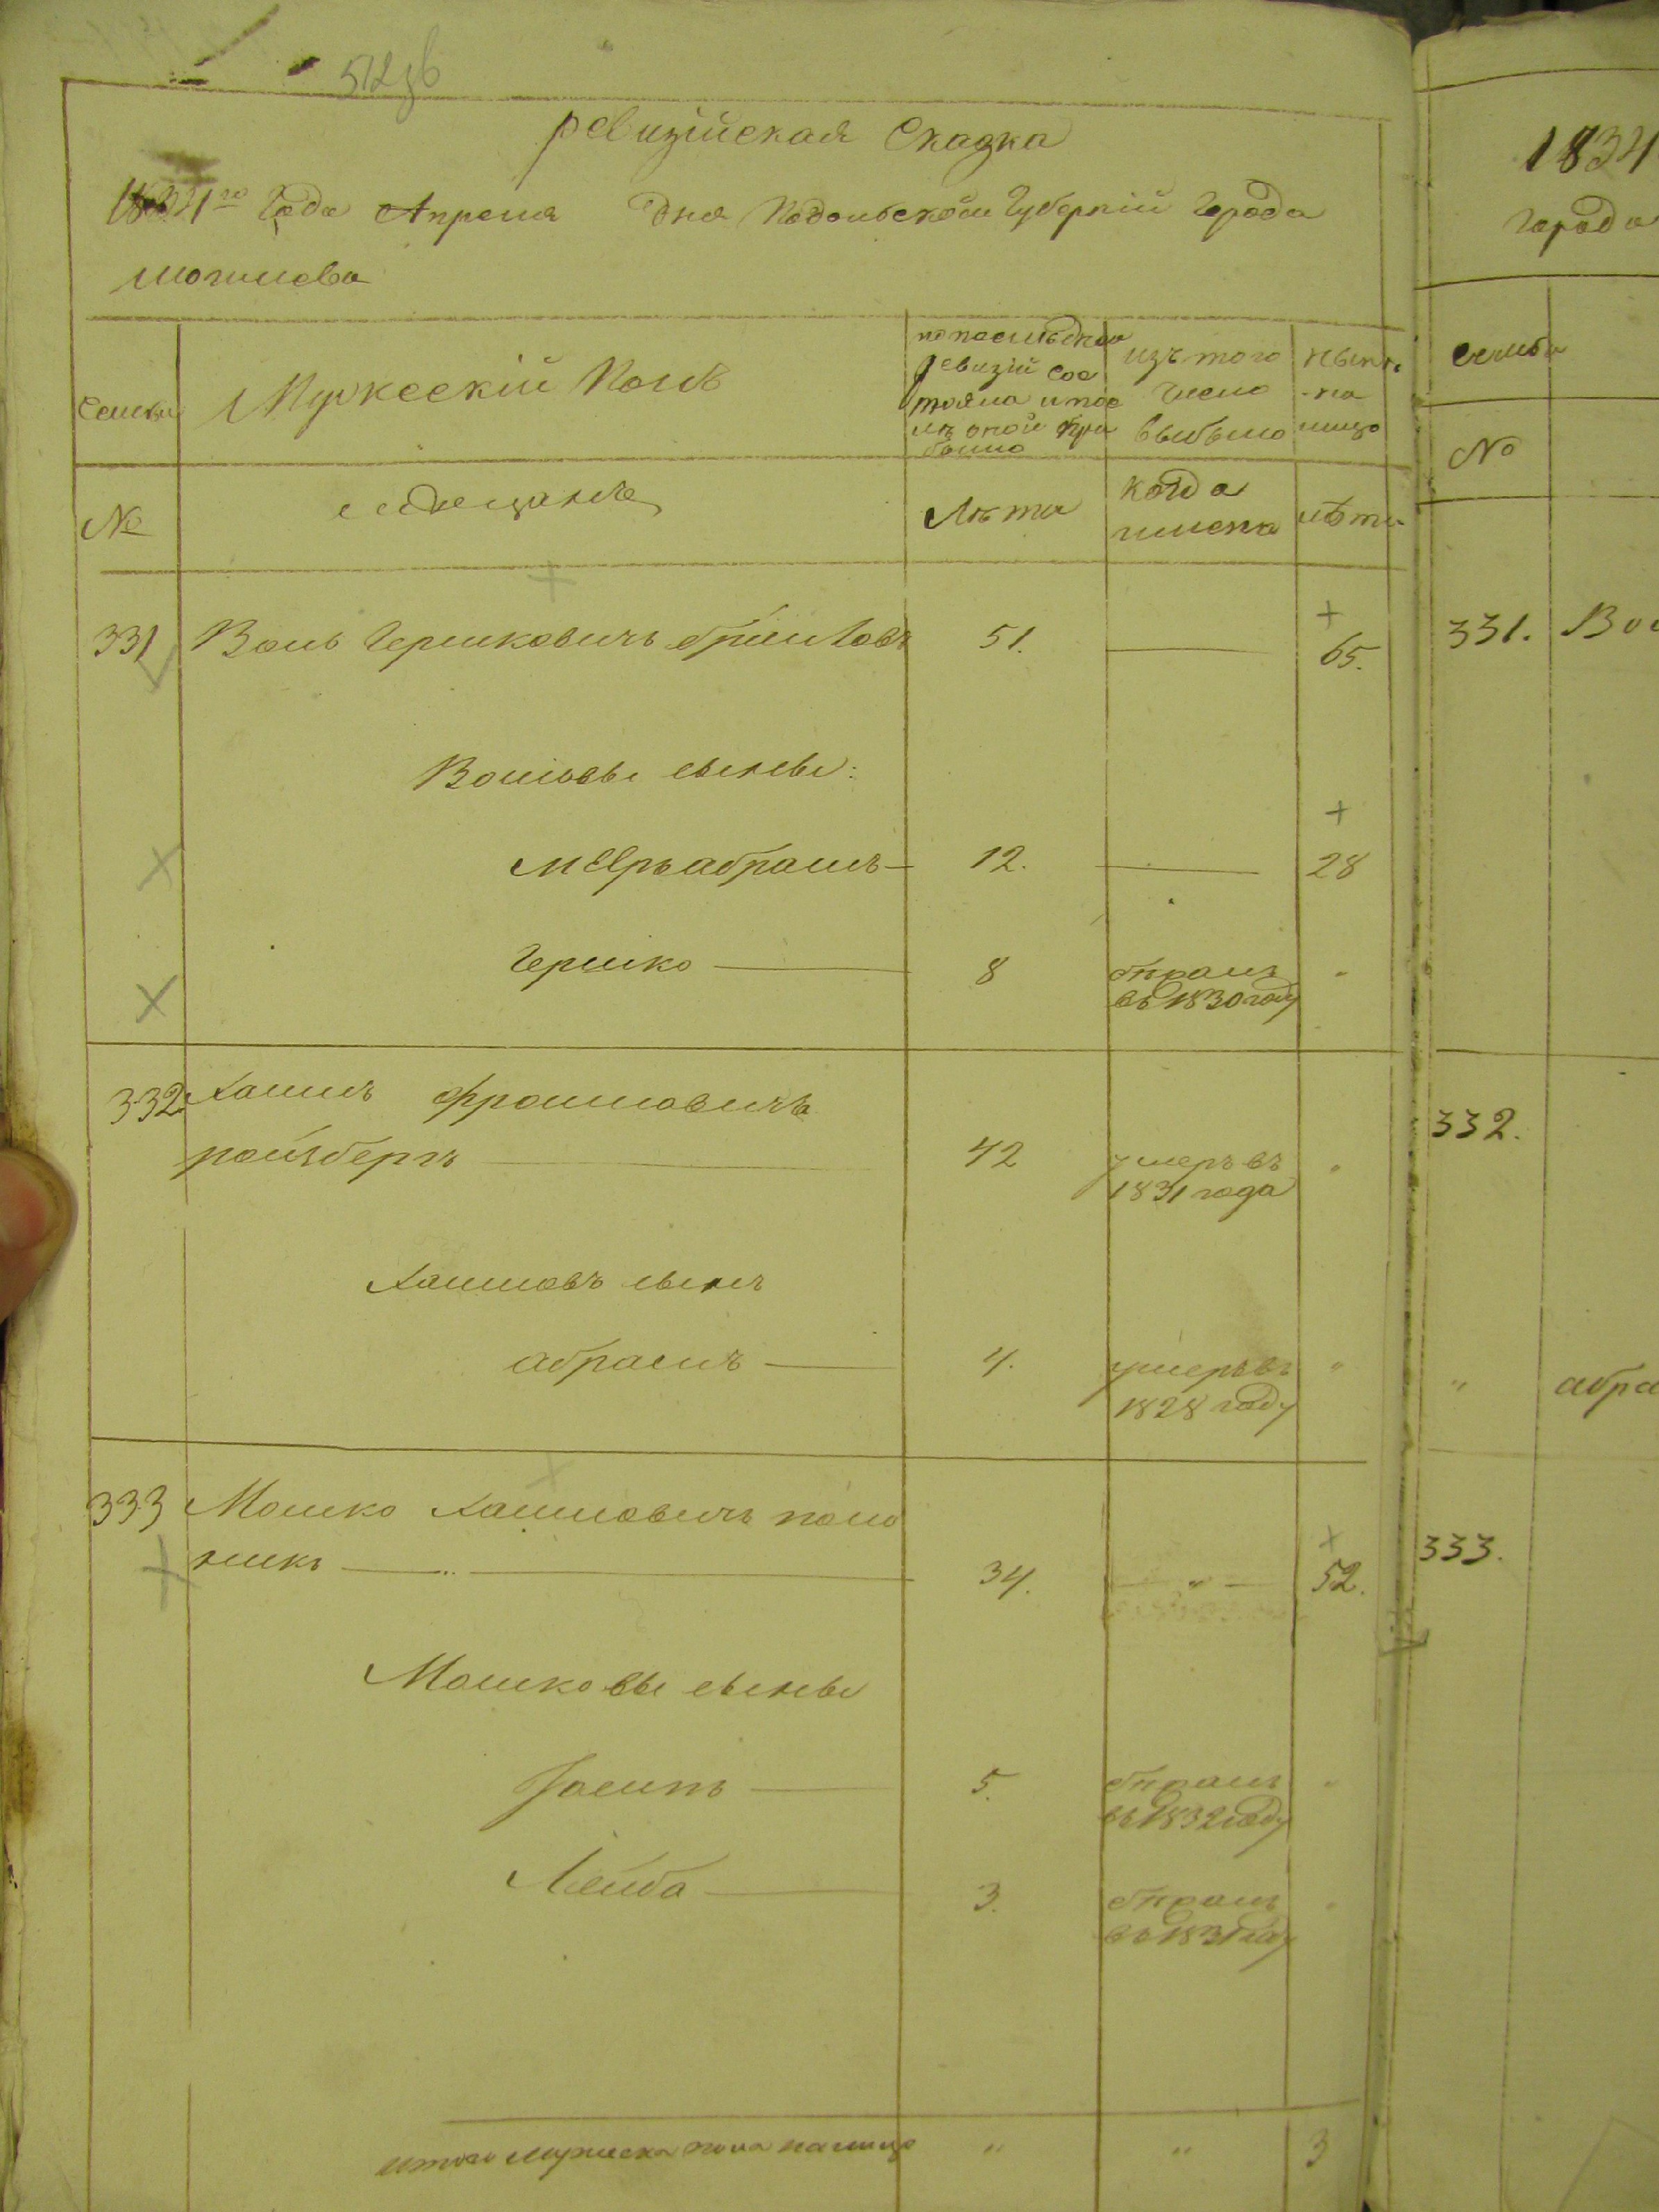 512
ревизійская Сказка
1834го Года Апреля Дня Подольской Губерніи Города
могилева
Семьи
Мужескій Полъ
по последней
ревизіи сос
тояло и пос
лѣ оной при
было
изъ того
числа
выбыло
нынѣ
на
лицо
№
мещане
Лѣта
когда
именно
лѣта
331
Воль Гершковичъ
51.
65.
Вольовы сыны:
Меѣръ абрамъ
12.
28
Гершко
8
въ 1830 году
332.
Хаимъ Фроимовичъ
ройзбергъ
42
умеръ въ
1831 года
Хаимовъ сынъ
абрамъ
4.
умеръ въ
1828 году
333
Мошко Хаимовичъ поло
никъ
34.
52.
Мошковы сыны
Іосипъ
5.
въ 1832 году
Лейба
3.
въ 1831 году
итого мужеска пола налицо
"
"
3
1834
города
семьи
№
331.
332.
"
абра
333.